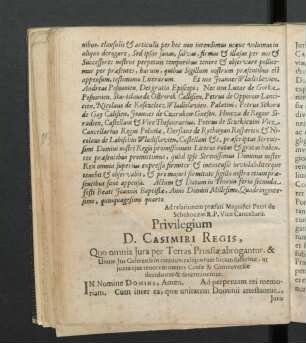 nibus, clausulis & articulis per hoc non intendimus neque volumus in
aliquo derogare, Sed ipsas salvas, firmas & illæsas per nos &
Successores nostros perpetuis temporibus tenere & observare pollice-
mur per præsentes, harum, quibus Sigillum nostrum præsentibus est
appensum, testimonio Literarum. Et nos Joannes Wladislavien.
Andreas Posnanien. Dei gratia Episcopi; Nec non Lucas de Gorka,
Posnanien. Stanislaus de Ostrorok Calissien. Petrus de Oporow Lancici-
en. Nicolaus de Wladislavien. Palatini; Petrus Schora
de Gay Calissien, Joannes de Czarnkow Gnesnen. Hincza de Rogow Si-
radien. Castellani & Vice Thesaurarius. Petrus de
Cancellarius Regni Poloniæ, Derslaus de Rythwyani & Ni-
colaus de Castellani &c. præscriptas Serenis-
simi Domini nostri Regis promissionum Literas ratas & gratas haben-
tes præsentibus promittimus, quod ipse Serenissimus Dominus noster
Rex omnia superius expressa firmiter & inviolabiliter
tenebit & observabit, & pro majori firmitate sigilla nostra etiam præ-
sentibus sunt appensa. Actum & Datum in Thorun feria secunda,
festi Beati Joannis Baptistæ, Anno Domini Millesimo, Quadringente-
simo, quinquagesimo quarto.
Ad relationem præfati Magnifici Petri de
R.P. Vice Cancellarii.
Privilegium
D. CASIMIRI REGIS,
Quo omnia Jura per Terras Prussiæ abrogantur, &
Unum Jus Culmense in
juxta ejus tenorem omnes Causæ & Controversiæ
decidantur & determinentur.
IN Nomine DOMINI, Amen. Ad perpetuam rei memo-
riam. Cum inter ea, quæ unitatem Dominii
Jura